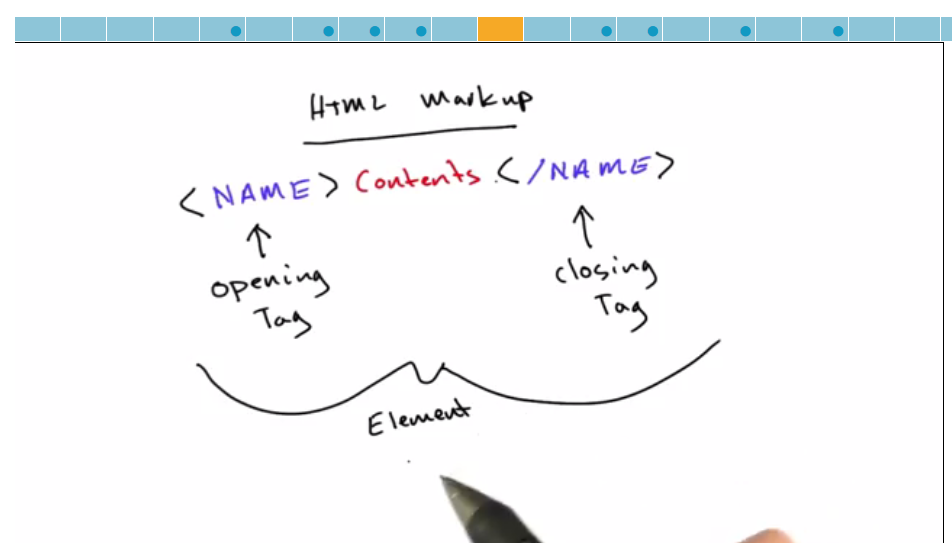 HTML Markup
<NAME> Contents </NAME>
opening Tag
closing Tag
Element